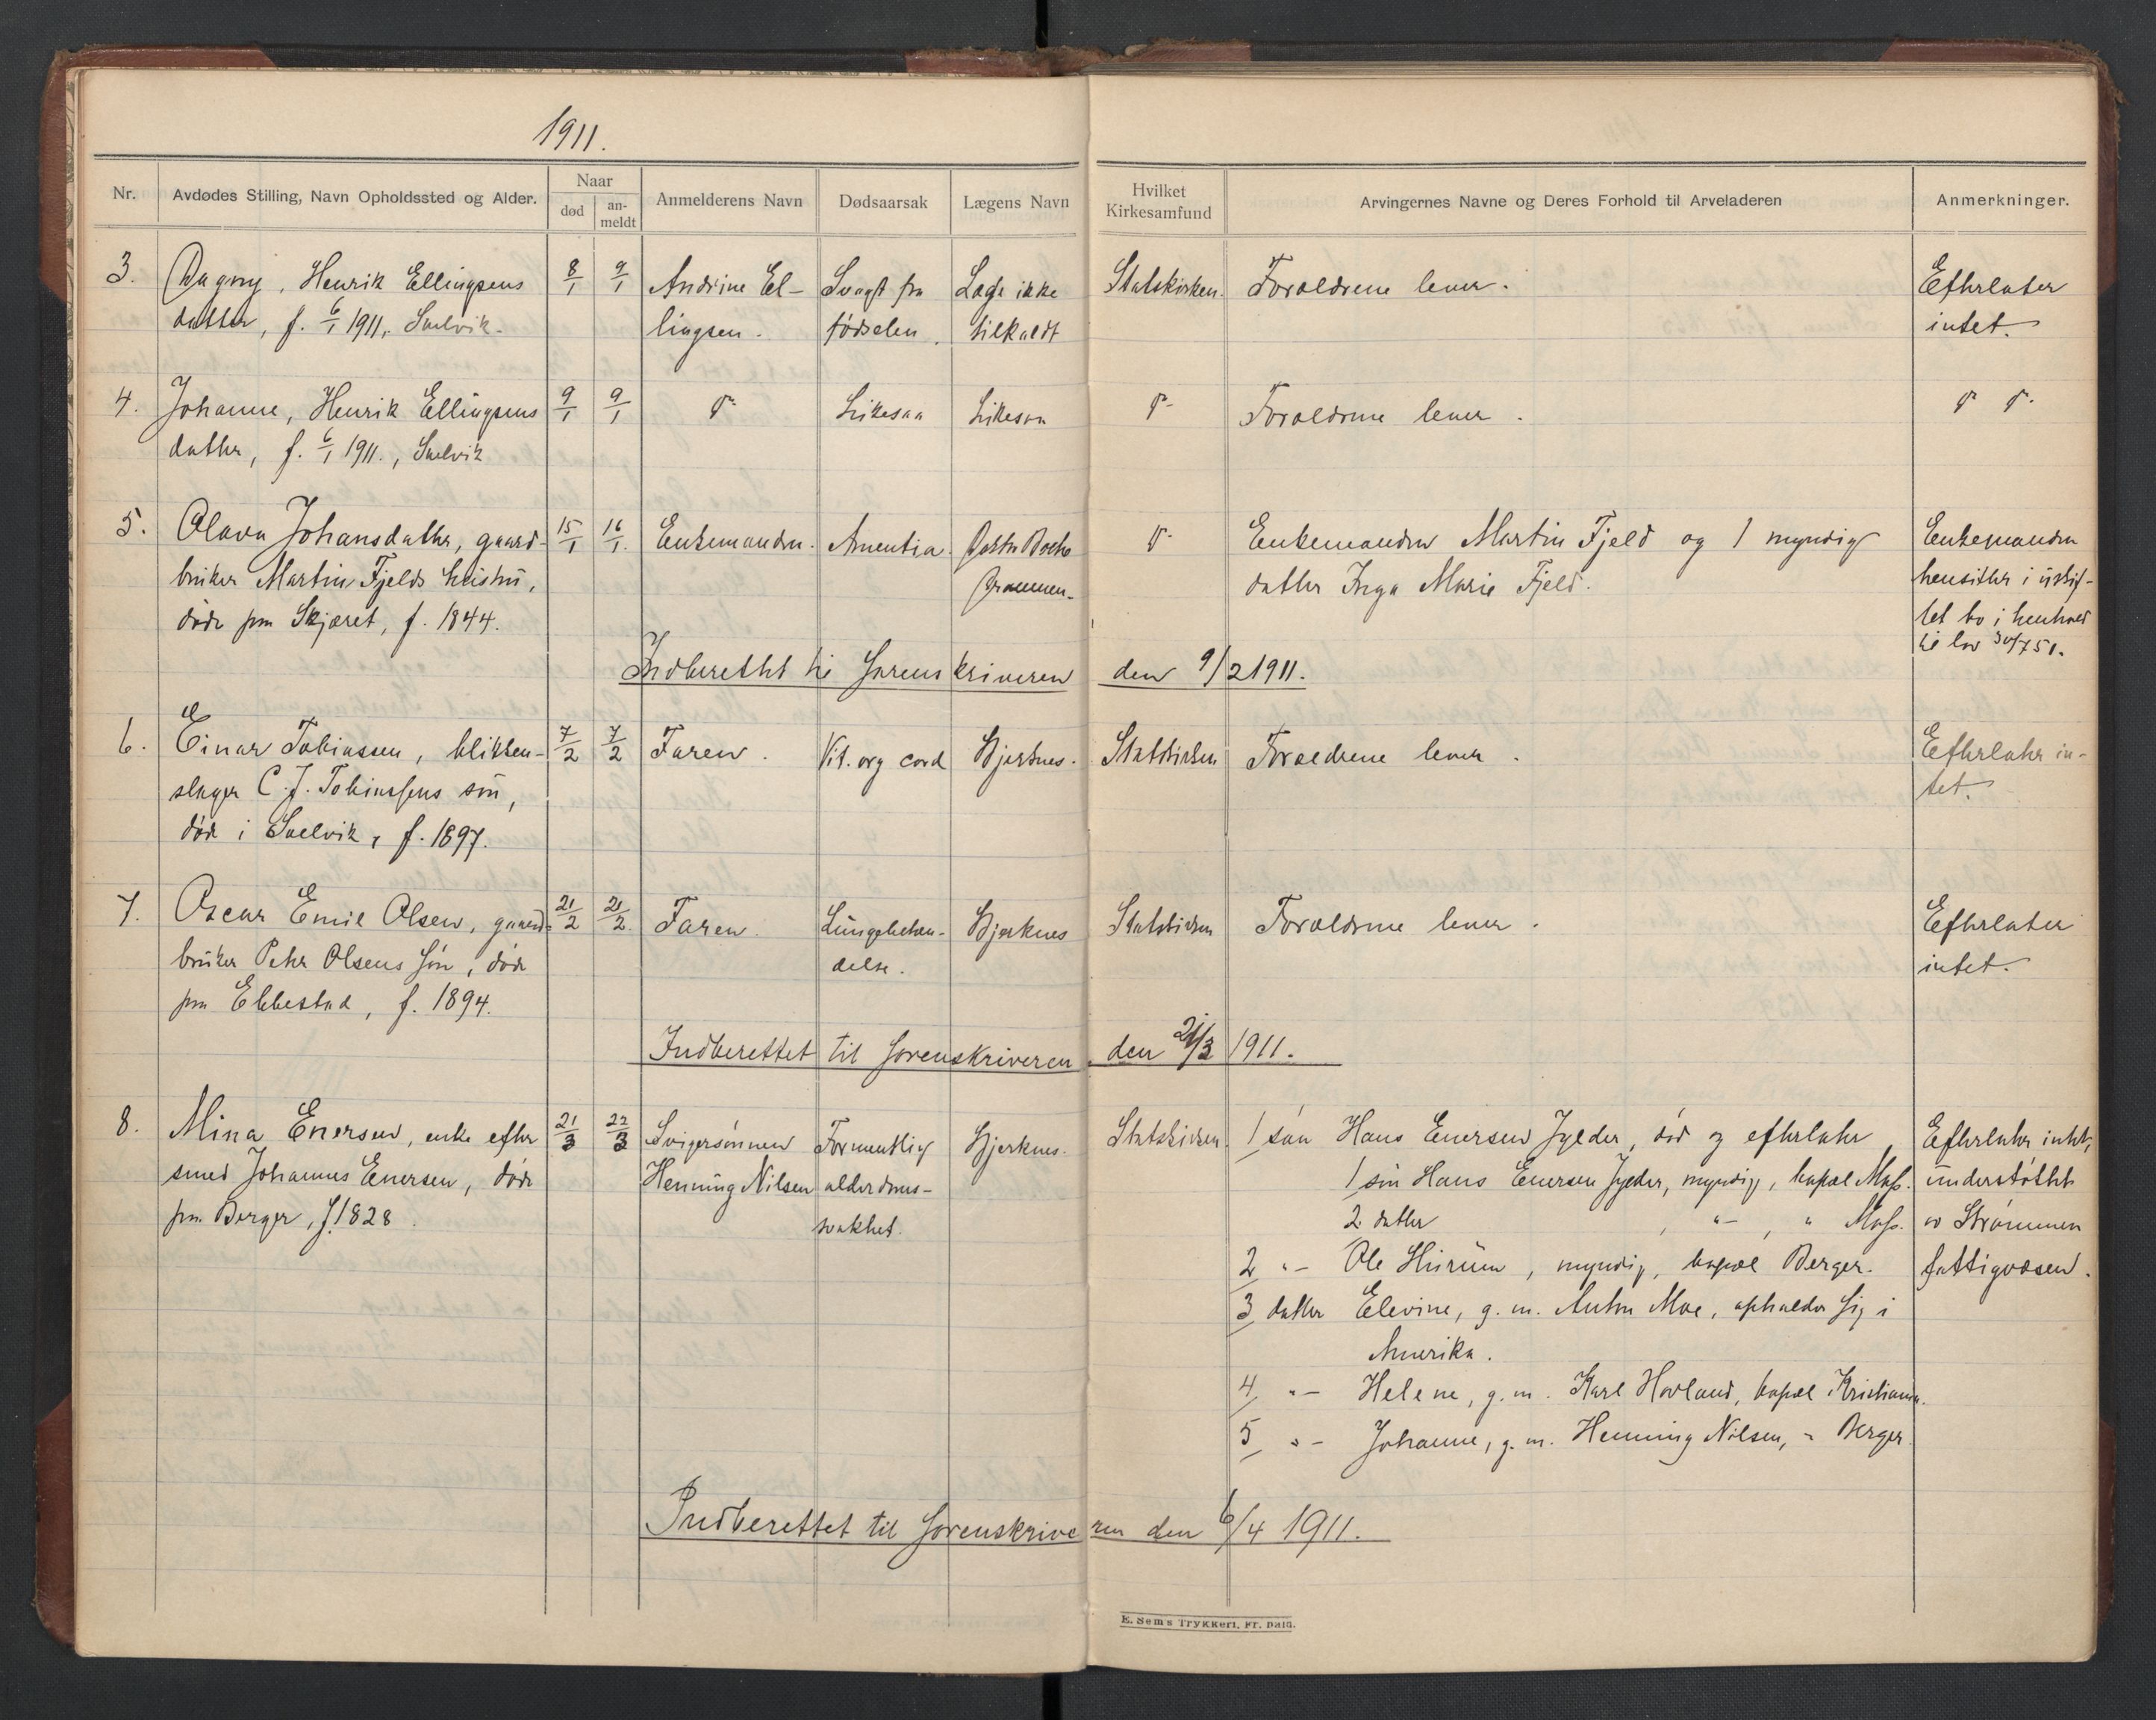 1911.
Nr. Avdødes Stilling, Navn Opholdssted og Alder. Naar død an-meldt Anmelderens Navn Dødsaarsak Lægens Navn Hvilket Kirkesamfund Arvingernes Navne og Deres Forhold til Arveladeren Anmerkninger.
3. Dagny, Henrik Ellingsens 8/1 9/1 Andrine El- Svagt fra Læge ikke Statskirken. Forældrene lever. Efterlater
datter, f. 6/1 1911, Svelvik. lingsen. fødselen. tilkaldt intet.
4. Johanne, Henrik Ellingsens 9/1 9/1 do Likesaa Likesaa do Forældrene lever. do do
datter, f. 6/1 1911., Svelvik
5. Olava Johansdatter, gaard- 15/1 16/1. Enkemanden. Amentia. Doktor do Enkemanden Martin Fjeld og 1 myndig Enkemanden
bruker Martin Fjelds hustru, Drammen. datter Inga Marie Fjeld. hensitter i uskif-
død paa Skjæret, f. 1844. tet bo i henhold
til lov 30/7 51.
Indberettet til Sorenskriveren den 9/2 1911.
6. Einar Tobiassen, blikken- 7/2 7/2 Faren. Vit. org cord Bjerknes. Statskirken Forældrene lever. Efterlater in-
slager C. J. Tobiassens søn, tet.
død i Svelvik, f. 1897.
7. Oscar Emil Olsen, gaard- 21/2 21/2. Faren. Lungebeten- Bjerknes Statskirken Forældrene lever. Efterlater
bruker Peter Olsens søn, død delse. intet.
paa Ebbestad, f. 1894.
Indberettet til Sorenskriveren den 21/3 1911.
8. Mina Enersen, enke efter 21/3 22/3 Svigersønnen Formentlig Bjerknes. Statskirken. 1 søn Hans Enersen Jylder, død og efterlater, Efterlater intet,
smed Johannes Enersen, død Henning Nilsen alderdoms- 1 søn Hans Enersen Jylder, myndig, bopæl Moss. understøttet
paa Berger, f. 1828. svakhet. 2 datter , "- , " Moss. av Strømmen
2 "- Ole Hurum, myndig, bopæl Berger. fattigvæsen.
3 datter Elevine, g. m. Anton Moe, opholder sig i
Amerika.
4 "- Helene, g. m. Karl Hovland, bopæl Kristiania.
5 "- Johanne, g. m. Henning Nilsen, " Berger
Indberettet til Sorenskriveren den 6/4 1911.
E. Sem's Trykkeri, Fr. hald.